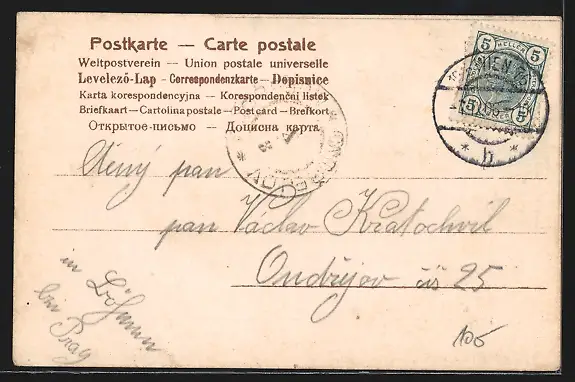 Postkarte — Carte postale
Weltpostverein — Union postale universelle
Levelező-Lap - Correspondenzkarte - Dopisnice
Karta korespondencyjna — Korespondenční lístek
Briefkaart — Cartolina postale — Postcard — Brefkort
Открытое письмо — Дописна карта
5 HELLER 5
5 5
WIEN
* b *
ONDŘEJOV
Ctěný pan
pan Václav Kratochvil
Ondřejov čís 25
in Böhmen
bei Prag
105